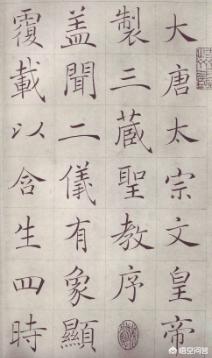 大唐太宗文皇帝
製三藏聖教序
盖聞二儀有象顯
覆載以含生四時
悟空问答